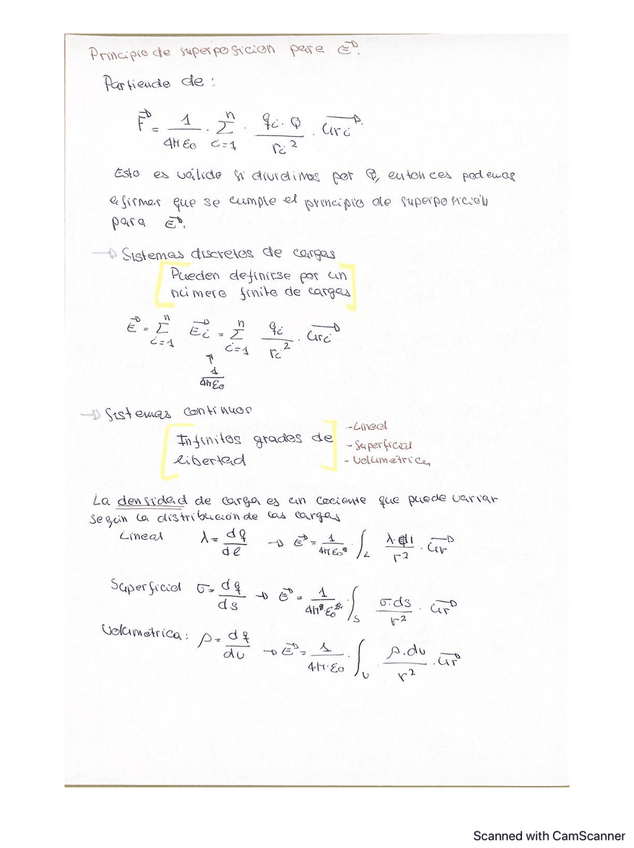 Principio de superposicion para E⃗.
Partiendo de:
F⃗ = 1/(4π ε0) · Σ_{i=1}^{n} · (qi · Q)/(ri²) · u⃗ri
Esto es válido si dividimos por Q, entonces podemos
afirmar que se cumple el principio de superposición
para E⃗.
→ Sistemas discretos de cargas
[Pueden definirse por un
número finito de cargas]
E⃗ = Σ_{i=1}^{n} E⃗i = Σ_{i=1}^{n} qi/ri² · u⃗ri
↑
1/(4π ε0)
→ Sistemas continuos
[Infinitos grados de
libertad]
- Lineal
- Superficial
- Volumétrica
La densidad de carga es un cociente que puede variar
según la distribución de las cargas
Lineal λ = dq/dl → E⃗ = 1/(4π ε0) ∫_L (λ dl)/r² · u⃗r
Superficial σ = dq/ds → E⃗ = 1/(4π ε0) ∫_S (σ · ds)/r² · u⃗r
Volumétrica: ρ = dq/dv → E⃗ = 1/(4π · ε0) · ∫_v (ρ · dv)/r² · u⃗r
Scanned with CamScanner